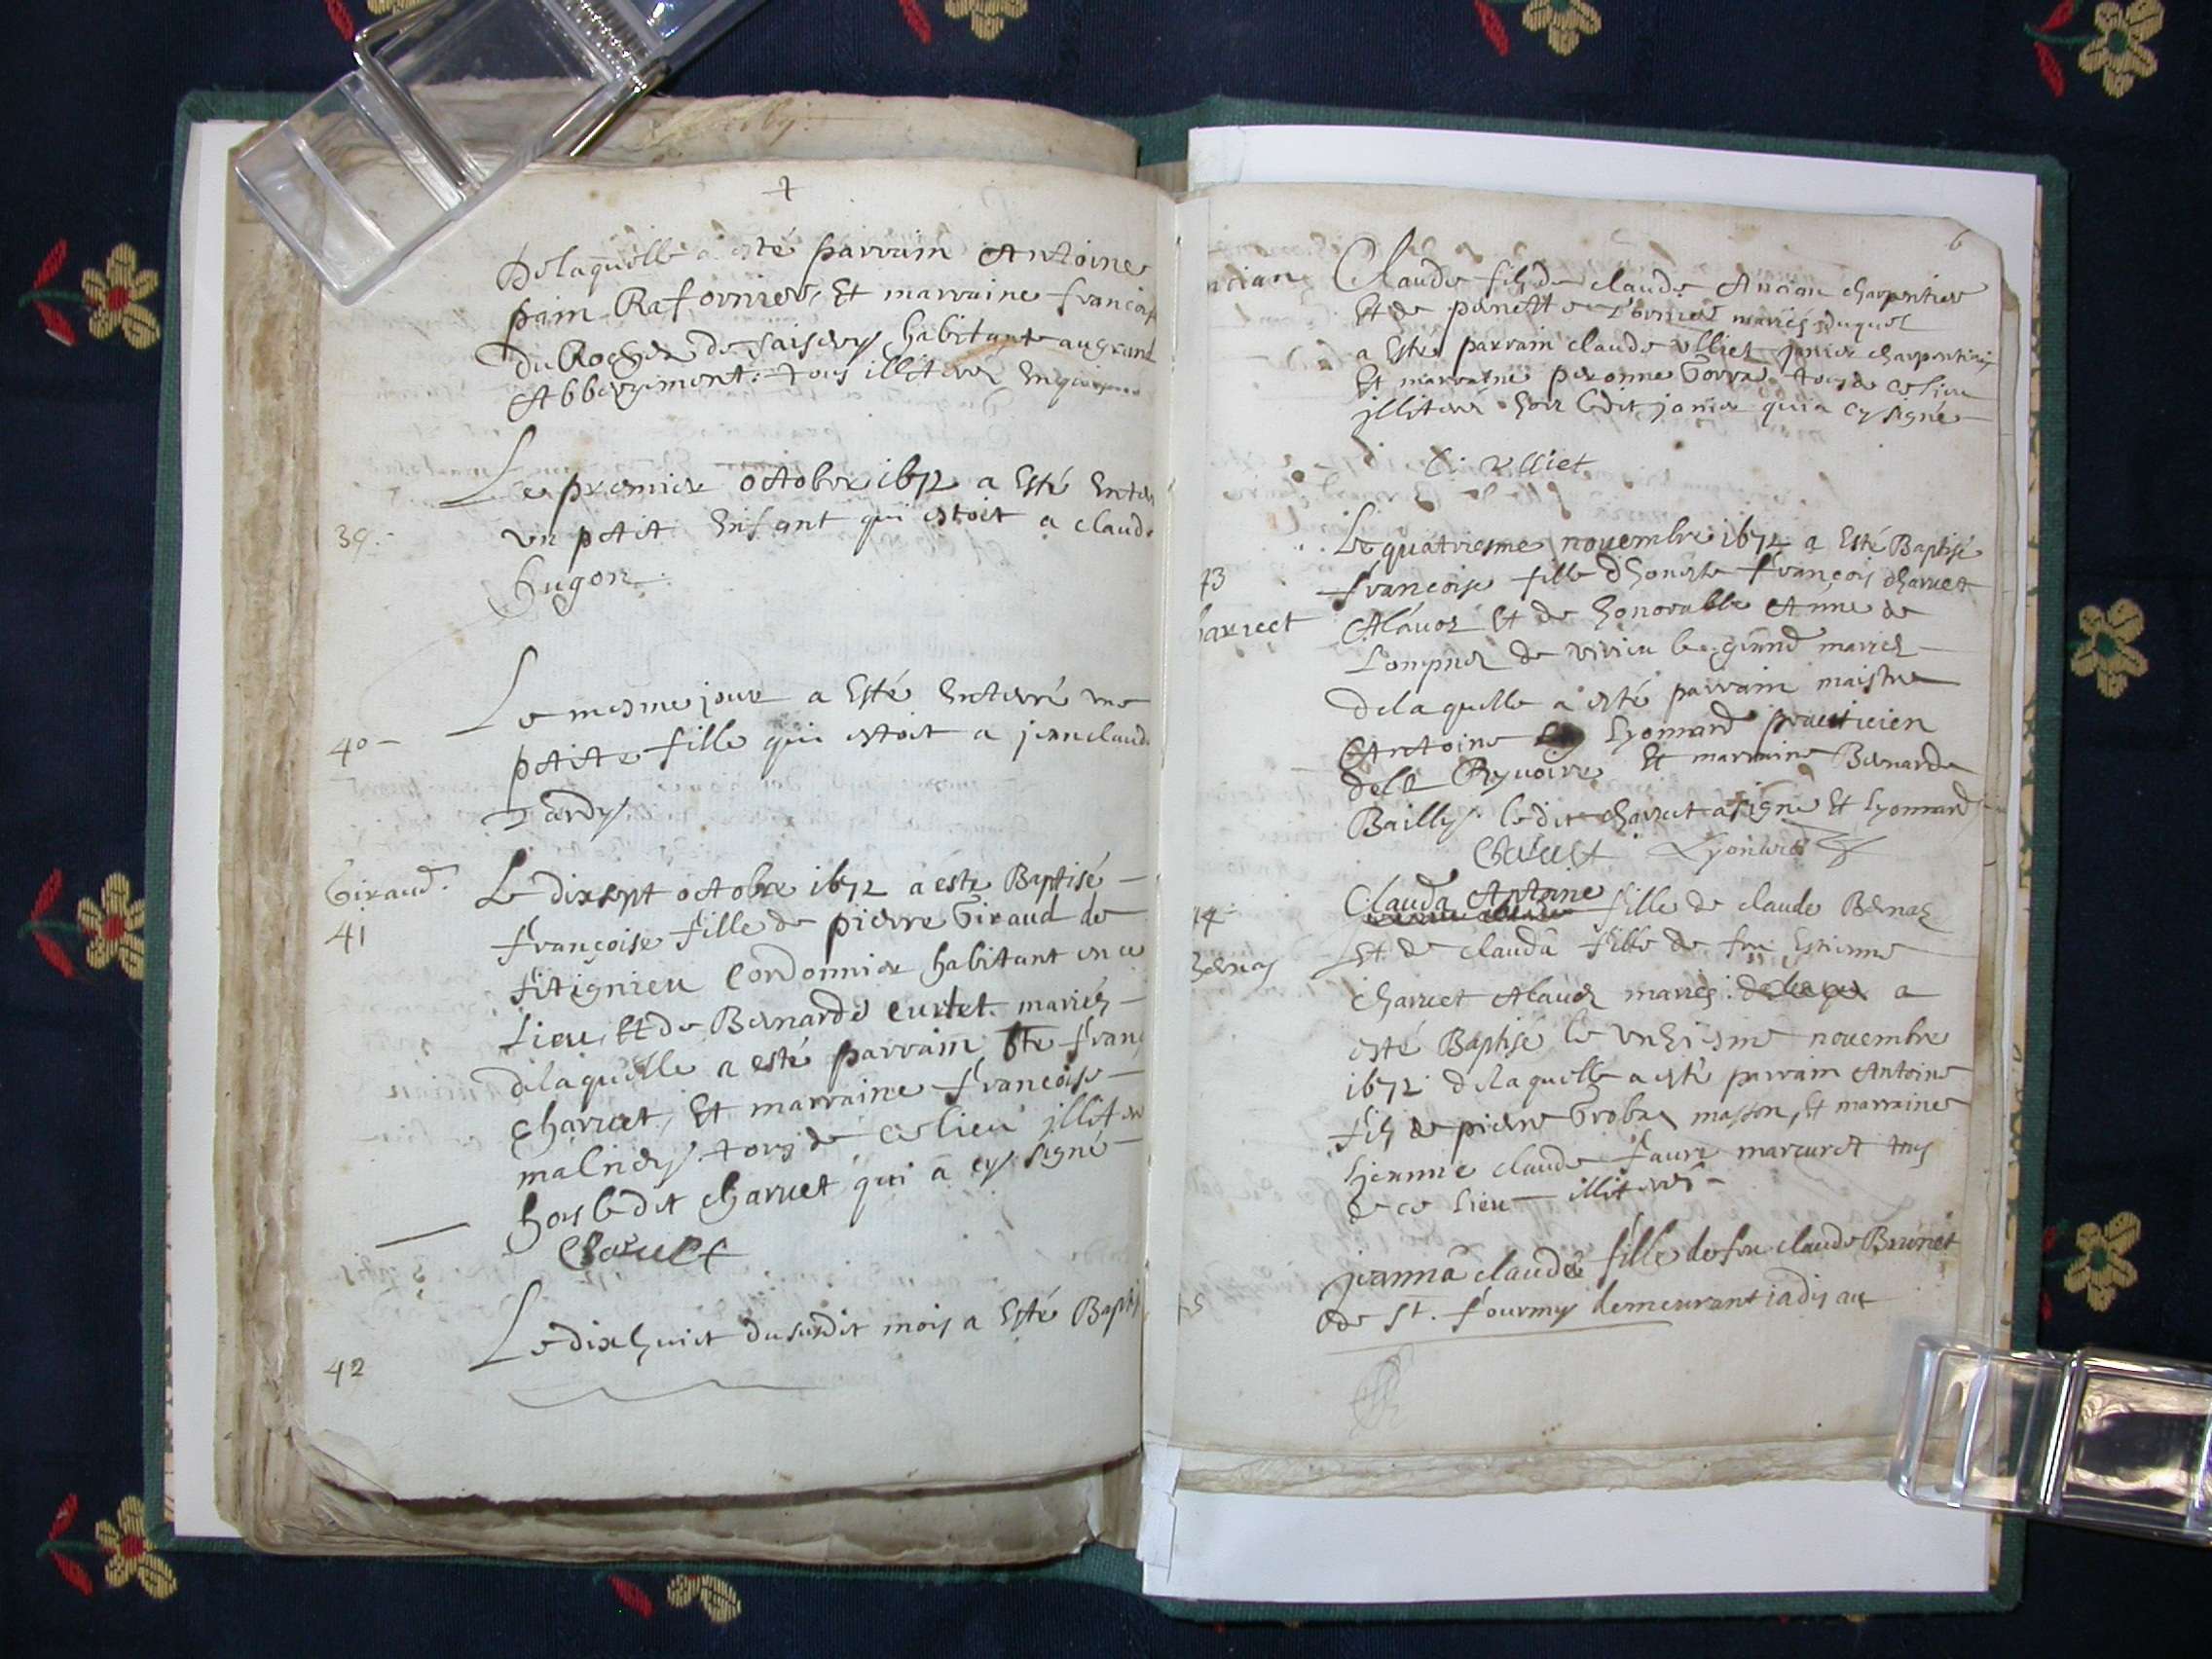 De laquelle a esté parrain Antoine
pain Rafornier, Et marraine françois
Du Rocher de saisery habitante au grand
Abbergimont. tous illiteres enquis
39.
Le premier octobre 1672 a Esté Enter
un petit Enfant qui estoit a claude
Gugon.
40
Le mesme jour a Esté Enterré une
petite fille qui estoit a jean claude
Tardy.
Giraud.
41
Le dix sept octobre 1672 a esté Baptisé
françoise fille de pierre Giraud de
fitignieu Cordonnier habitant en ce
Lieu, Et de Bernarde curtet mariés
de laquelle a esté parrain hte franç
charvet, Et marraine françoise
malrey. tous de ce lieu illitere
hors le dit charvet qui a cy signé
Charvet
42
Le dix huict du susdit mois a Esté Baptis
6
ncian
Claude fils de claude Ancian charpentier
Et de penette Cornier mariés duquel
a Esté parrain claude ulliet janier charpentier
Et marraine peronne Gorra tous de ce lieu
jlliteres hors ledit janier qui a cy signé
Cl. ulliet
43
harvet
Le quatriesme novembre 1672 a Esté Baptisé
françoise fille d'honeste françois charvet
Alavoz Et de honorable Anne de
Lompnes de virieu le grand mariés
de laquelle a esté parrain maistre
Antoine Lyonnard praticien
de la Ryvoire Et marraine Bernarde
Bailly. le dit charvet a signé Et Lyonnard
Charvet Lyonard
44
Bernaz
Clauda Antoine fille de claude Bernaz
Et de clauda fille de feu Estienne
charvet Alavoz mariés. de laquel a
esté Baptisé le unziesme novembre
1672. de laquelle a esté parrain Antoine
fils de pierre Grobaz masson, Et marraine
hieanne claude faure marcuret tous
de ce lieu illiteres
45
jeanna claude fille de feu claude Brunet
de St. fourmy demeurant jadis au